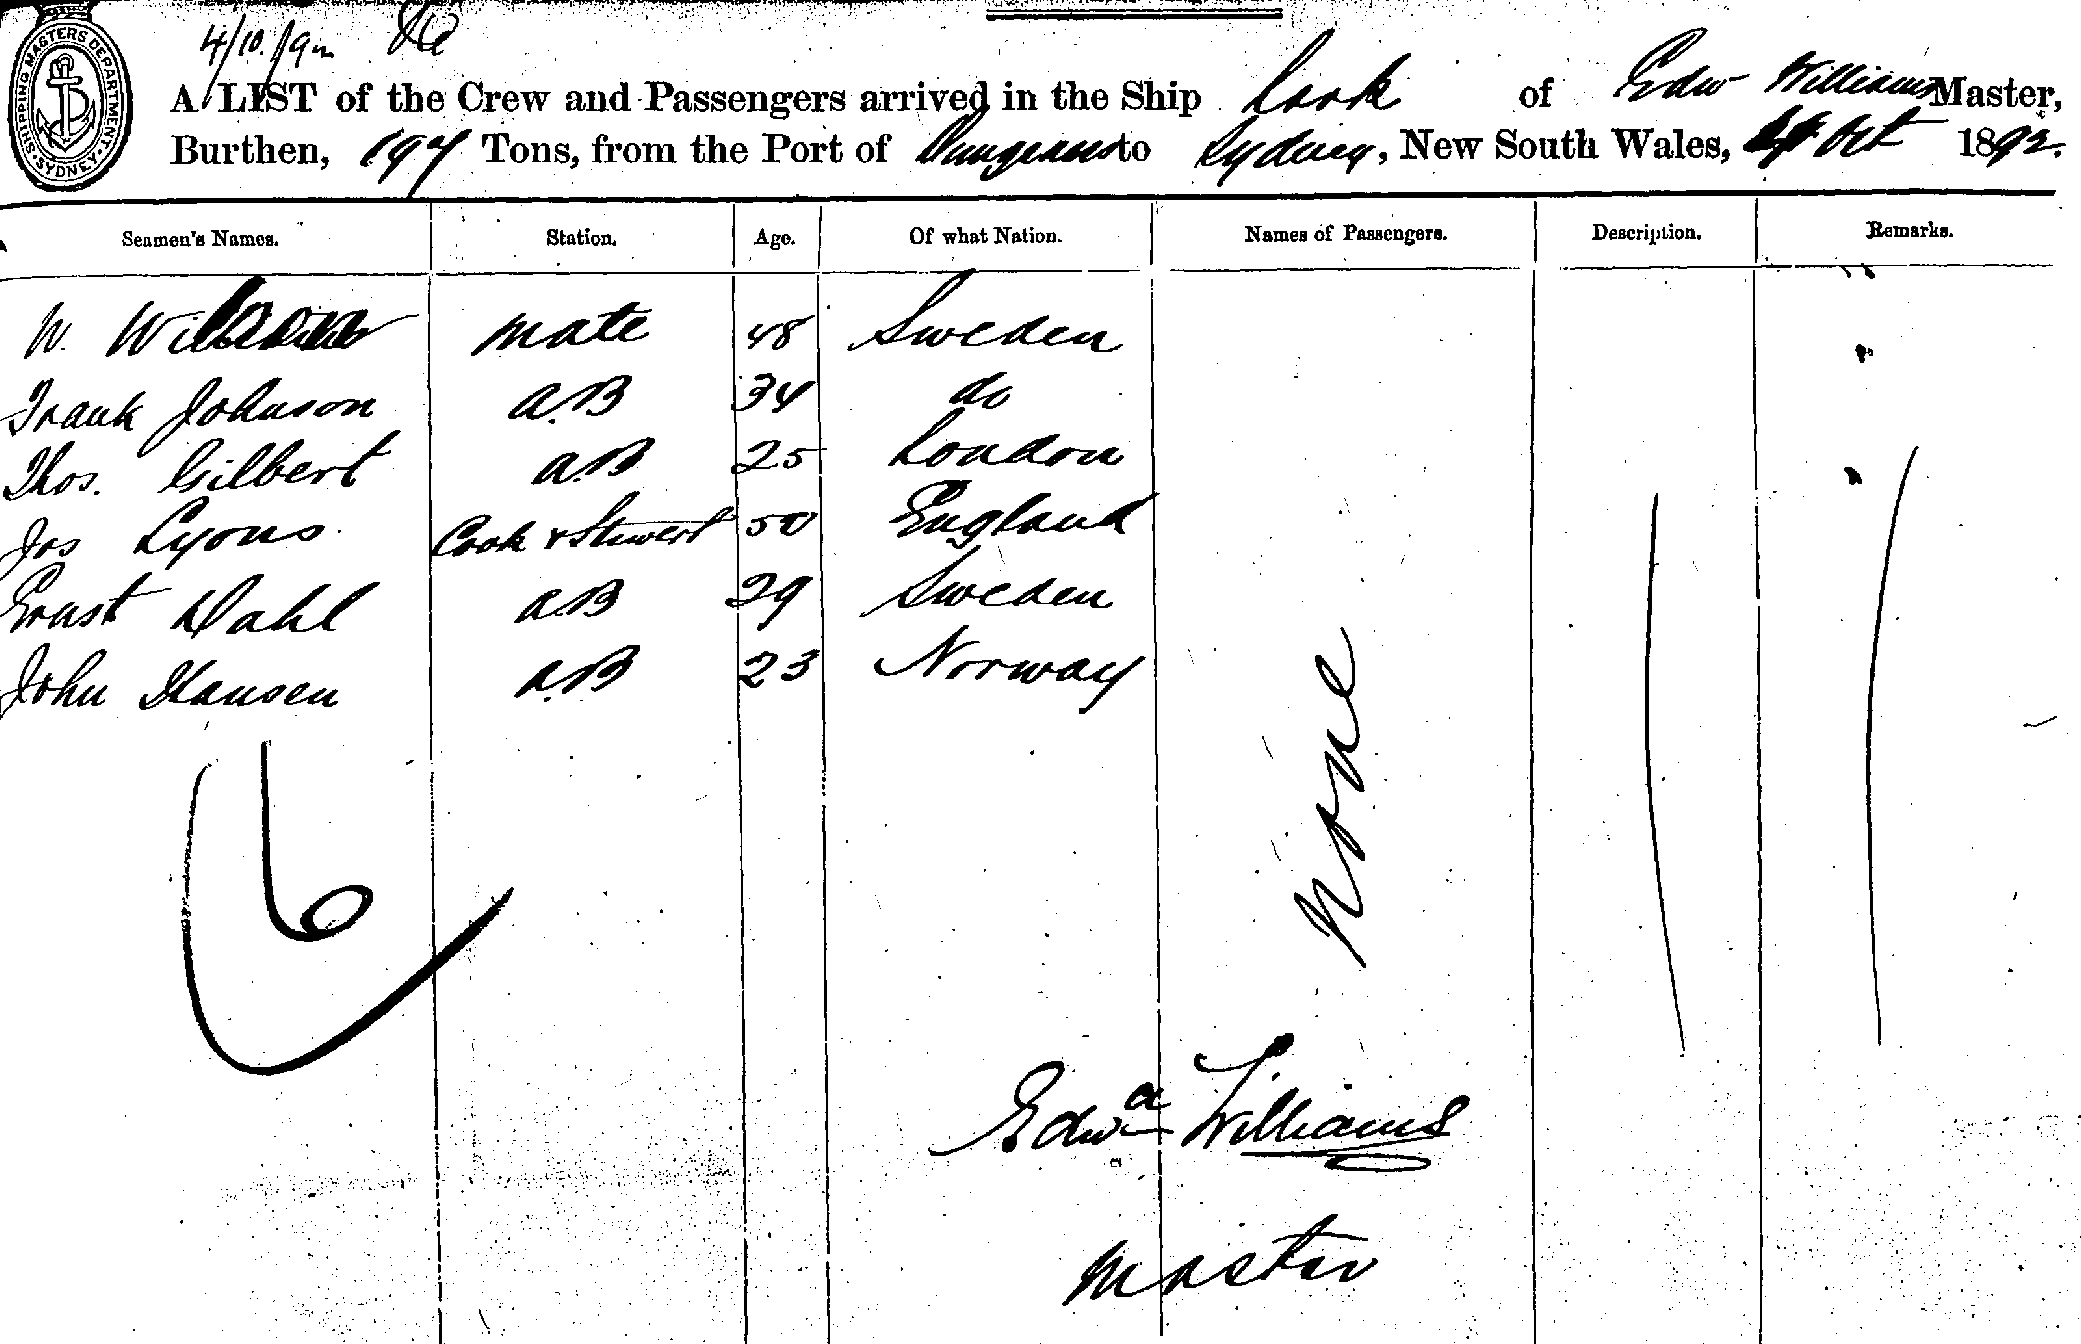 4/10/92
SHIPPING MASTERS DEPARTMENT SYDNEY
A LIST of the Crew and Passengers arrived in the Ship of Edw Williams Master,
Burthen, 197 Tons, from the Port of to Sydney, New South Wales, Oct 1892.
Seamen's Names. Station. Age. Of what Nation. Names of Passengers. Description. Remarks.
W. mate 48 Sweden
Frank Johnson A.B 34 do
Thos. Gilbert A.B 25 London
Jos Lyons Cook & Stuwert 50 England
Ernst Dahl A.B 29 Sweden
John Hansen A.B 23 Norway
none
6
Edwd Williams
Master